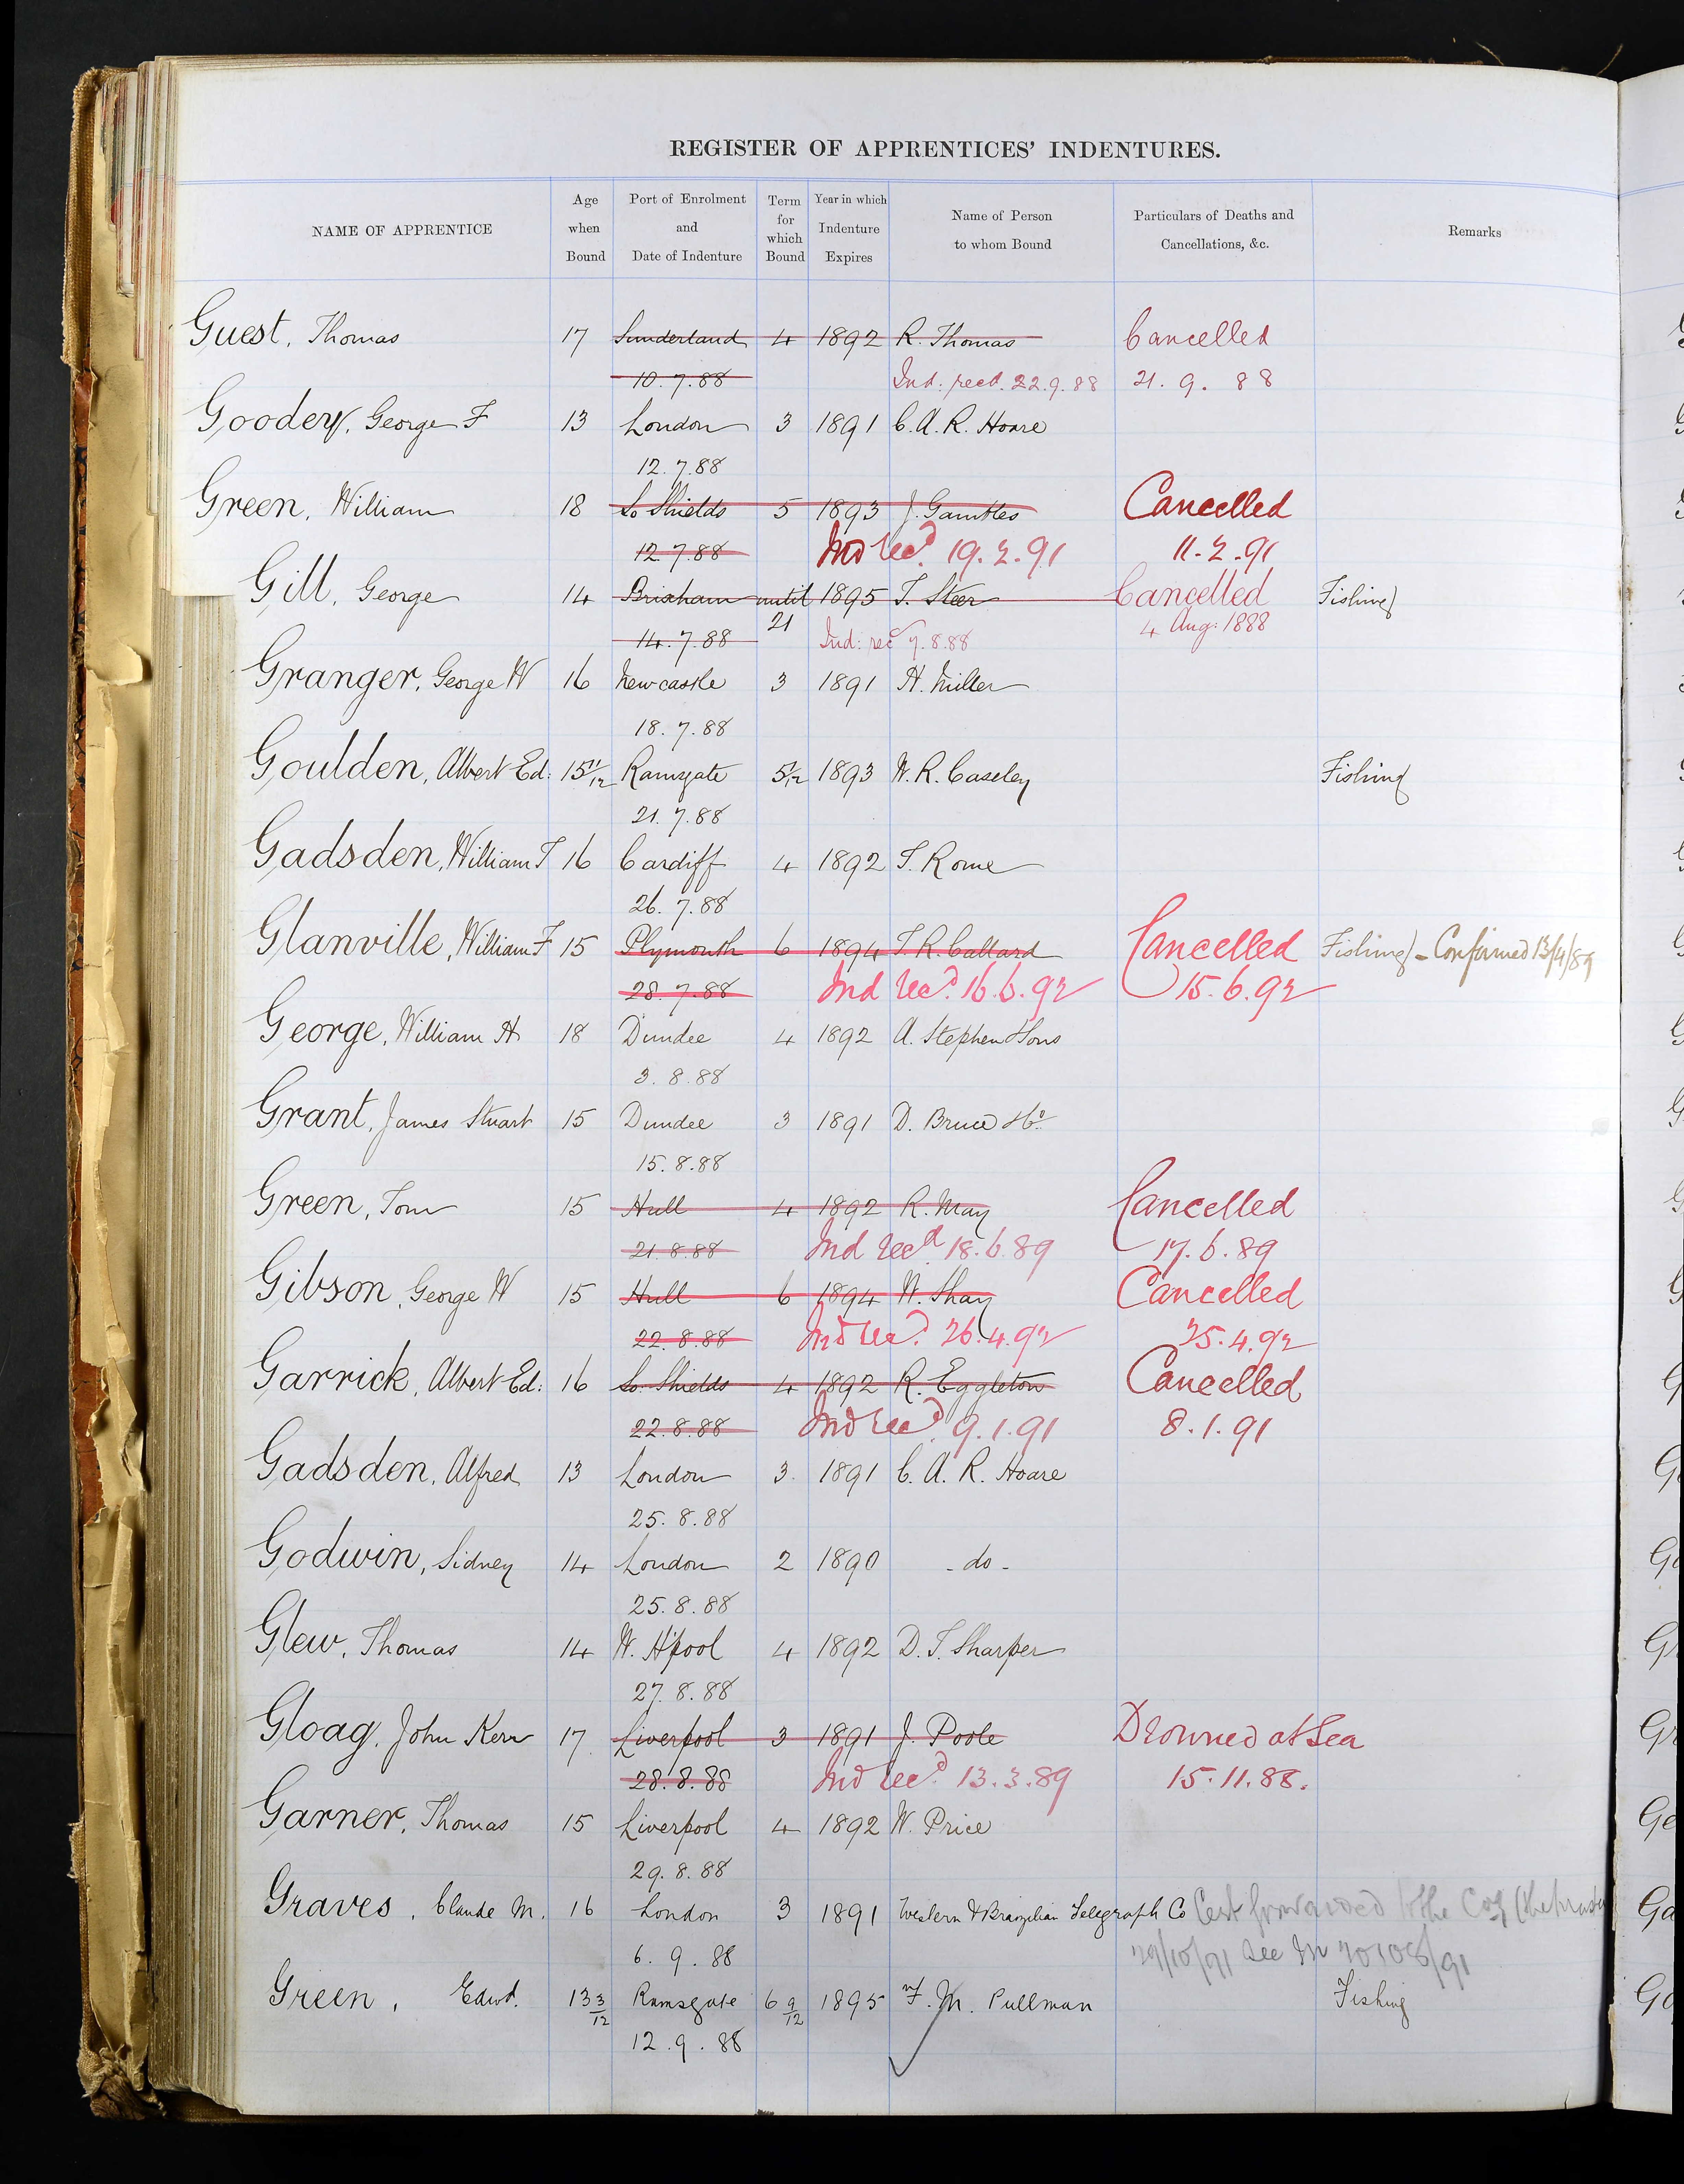 REGISTER OF APPRENTICES' INDENTURES.
NAME OF APPRENTICE Age when Bound Port of Enrolment and Date of Indenture Term for which Bound Year in which Indenture Expires Name of Person to whom Bound Particulars of Deaths and Cancellations, &c. Remarks
Guest, Thomas 17 Sunderland 4 1892 R. Thomas Cancelled
10.7.88 Ind: recd. 22.9.88 21.9.88
Goodery, George F 13 London 3 1891 C. A. R. Hoare
12.7.88
Green, William 18 So Shields 5 1893 J. Gauntles Cancelled
12.7.88 Ind recd. 19.2.91 11.2.91
Gill, George 14 Brixham until 1895 T. Steer Cancelled Fishing
14.7.88 21 Ind: recd 7.8.88 4 Aug: 1888
Granger, George W 16 Newcastle 3 1891 H. Miller
18.7.88
Goulden, Albert Ed: 15 11/12 Ramsgate 5 1/12 1893 W. R. Caseley Fishing
21.7.88
Gadsden, William T 16 Cardiff 4 1892 T. Rome
26.7.88
Glanville, William F 15 Plymouth 6 1894 T. R. Callard Cancelled Fishing - Confirmed 13/4/89
28.7.88 Ind recd. 16.6.92 15.6.92
George, William H 18 Dundee 4 1892 A. Stephen & Sons
3.8.88
Grant, James Stuart 15 Dundee 3 1891 D. Bruce & Co.
15.8.88
Green, Tom 15 Hull 4 1892 R. May Cancelled
21.8.88 Ind recd 18.6.89 17.6.89
Gibson, George W 15 Hull 6 1894 W. Shay Cancelled
22.8.88 Ind recd. 26.4.92 25.4.92
Garrick, Albert Ed: 16 So. Shields 4 1892 R. Eggleton Cancelled
22.8.88 Ind recd. 9.1.91 8.1.91
Gadsden, Alfred 13 London 3 1891 C. A. R. Hoare
25.8.88
Godwin, Sidney 14 London 2 1890 - do -
25.8.88
Glew, Thomas 14 W. H'pool 4 1892 D. T. Sharper
27.8.88
Gloag, John Kerr 17 Liverpool 3 1891 J. Poole Drowned at Sea
28.8.88 Ind recd. 13.3.89 15.11.88.
Garner, Thomas 15 Liverpool 4 1892 W. Price
29.8.88
Graves, Claude M. 16 London 3 1891 Western & Brazilian Telegraph Co Cert forwarded to the Coy
6.9.88 29/10/91 See M /91
Green, Edwd. 13 3/12 Ramsgate 6 9/12 1895 F. M. Pullman Fishing
12.9.88